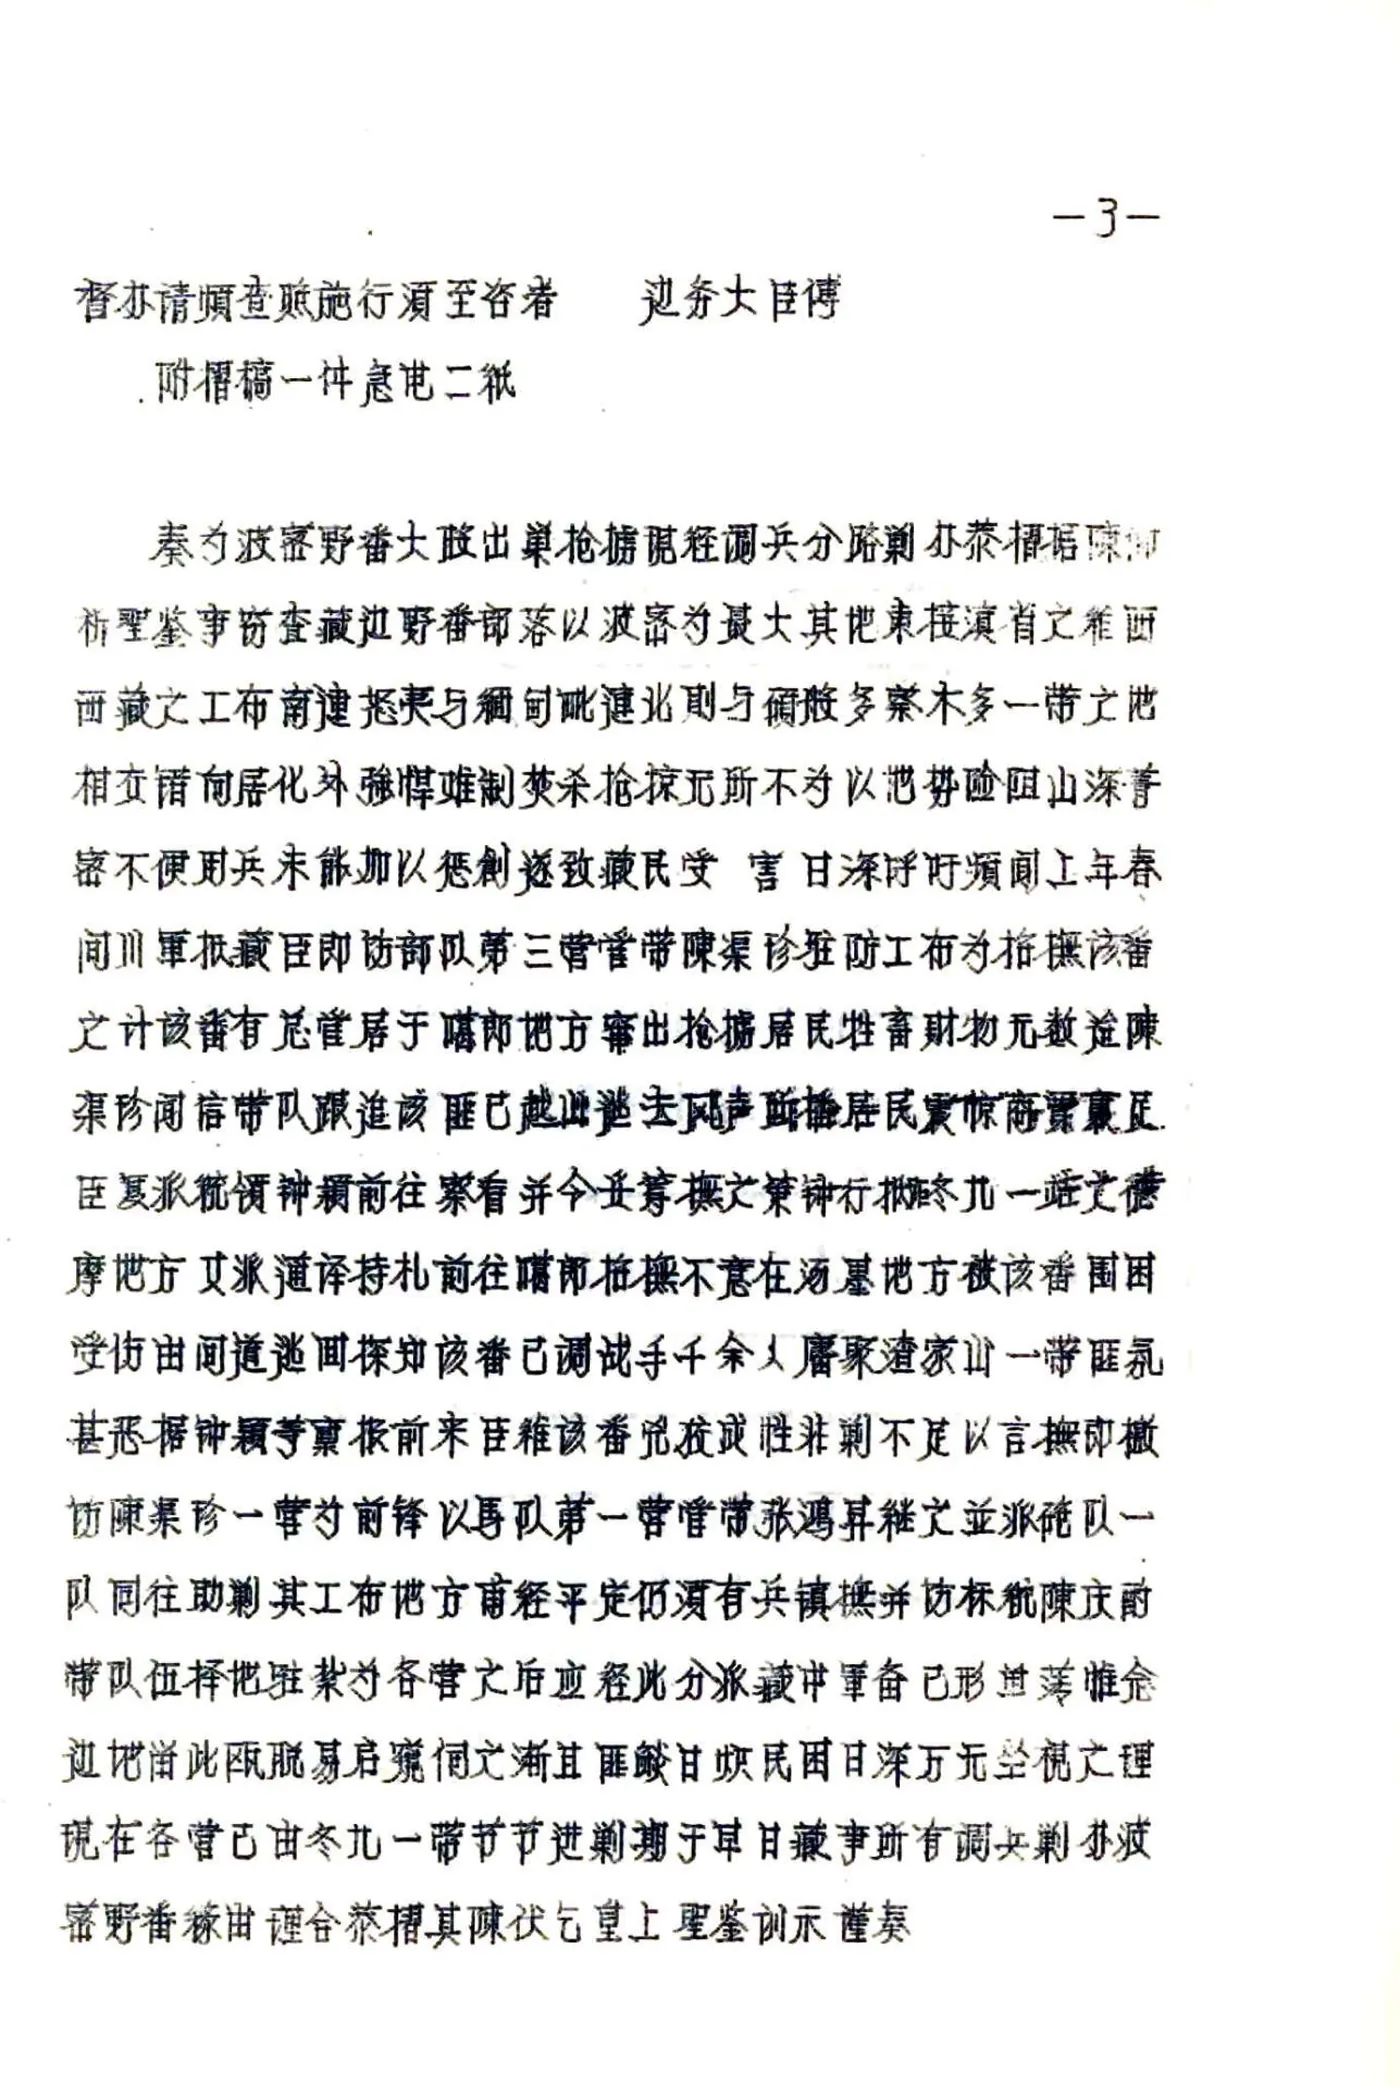 —3—
督办请烦查照施行须至咨者 边务大臣傅
附摺稿一件急电二纸
奏为波密野番大股出巢抢掳现经调兵分路剿办恭摺据陈仰
祈聖鉴事窃查藏边野番部落以波密为最大其地東接滇省之维西
西藏之工布南連怒夷与缅甸毗連北则与碩般多察木多一带之地
相交错向居化外强悍难制焚杀抢掠无所不为以地势险阻山深箐
密不便用兵未能加以惩創遂致藏民受 害日深呼吁频闻上年春
间川軍抵藏臣即饬部队第三营管带陳渠珍驻防工布为招撫该番
之计该番有总管居于噶郎地方窜出抢掳居民牲畜财物无数迨陳
渠珍闻信带队跟追该匪已越山逃去风声所播居民震惊商賈裹足
臣复派統領钟颖前往察看并令妥筹撫之策钟行抵冬九一站之德
摩地方又派通译持札前往噶郎招撫不意在汤墨地方被该番围困
受伤由间道逃回探知该番已调战手千余人麕聚渣家山一带匪氛
甚恶据钟颖等禀报前来臣维该番兇狡成性非剿不足以言撫即檄
饬陳渠珍一营为前锋以马队第一营管带张鸿昇继之並派砲队一
队同往助剿其工布地方甫经平定仍须有兵镇撫并饬标統陳庆酌
带队伍择地驻紮为各营之后应经此分派藏中軍备已形过荡惟念
边地留此瓯脱易启窺伺之渐且匪燄日炽民困日深万无坐视之理
现在各营已由冬九一带节节进剿期于早日藏事所有调兵剿办波
密野番缘由理合恭摺其陳伏乞皇上聖鉴训示谨奏